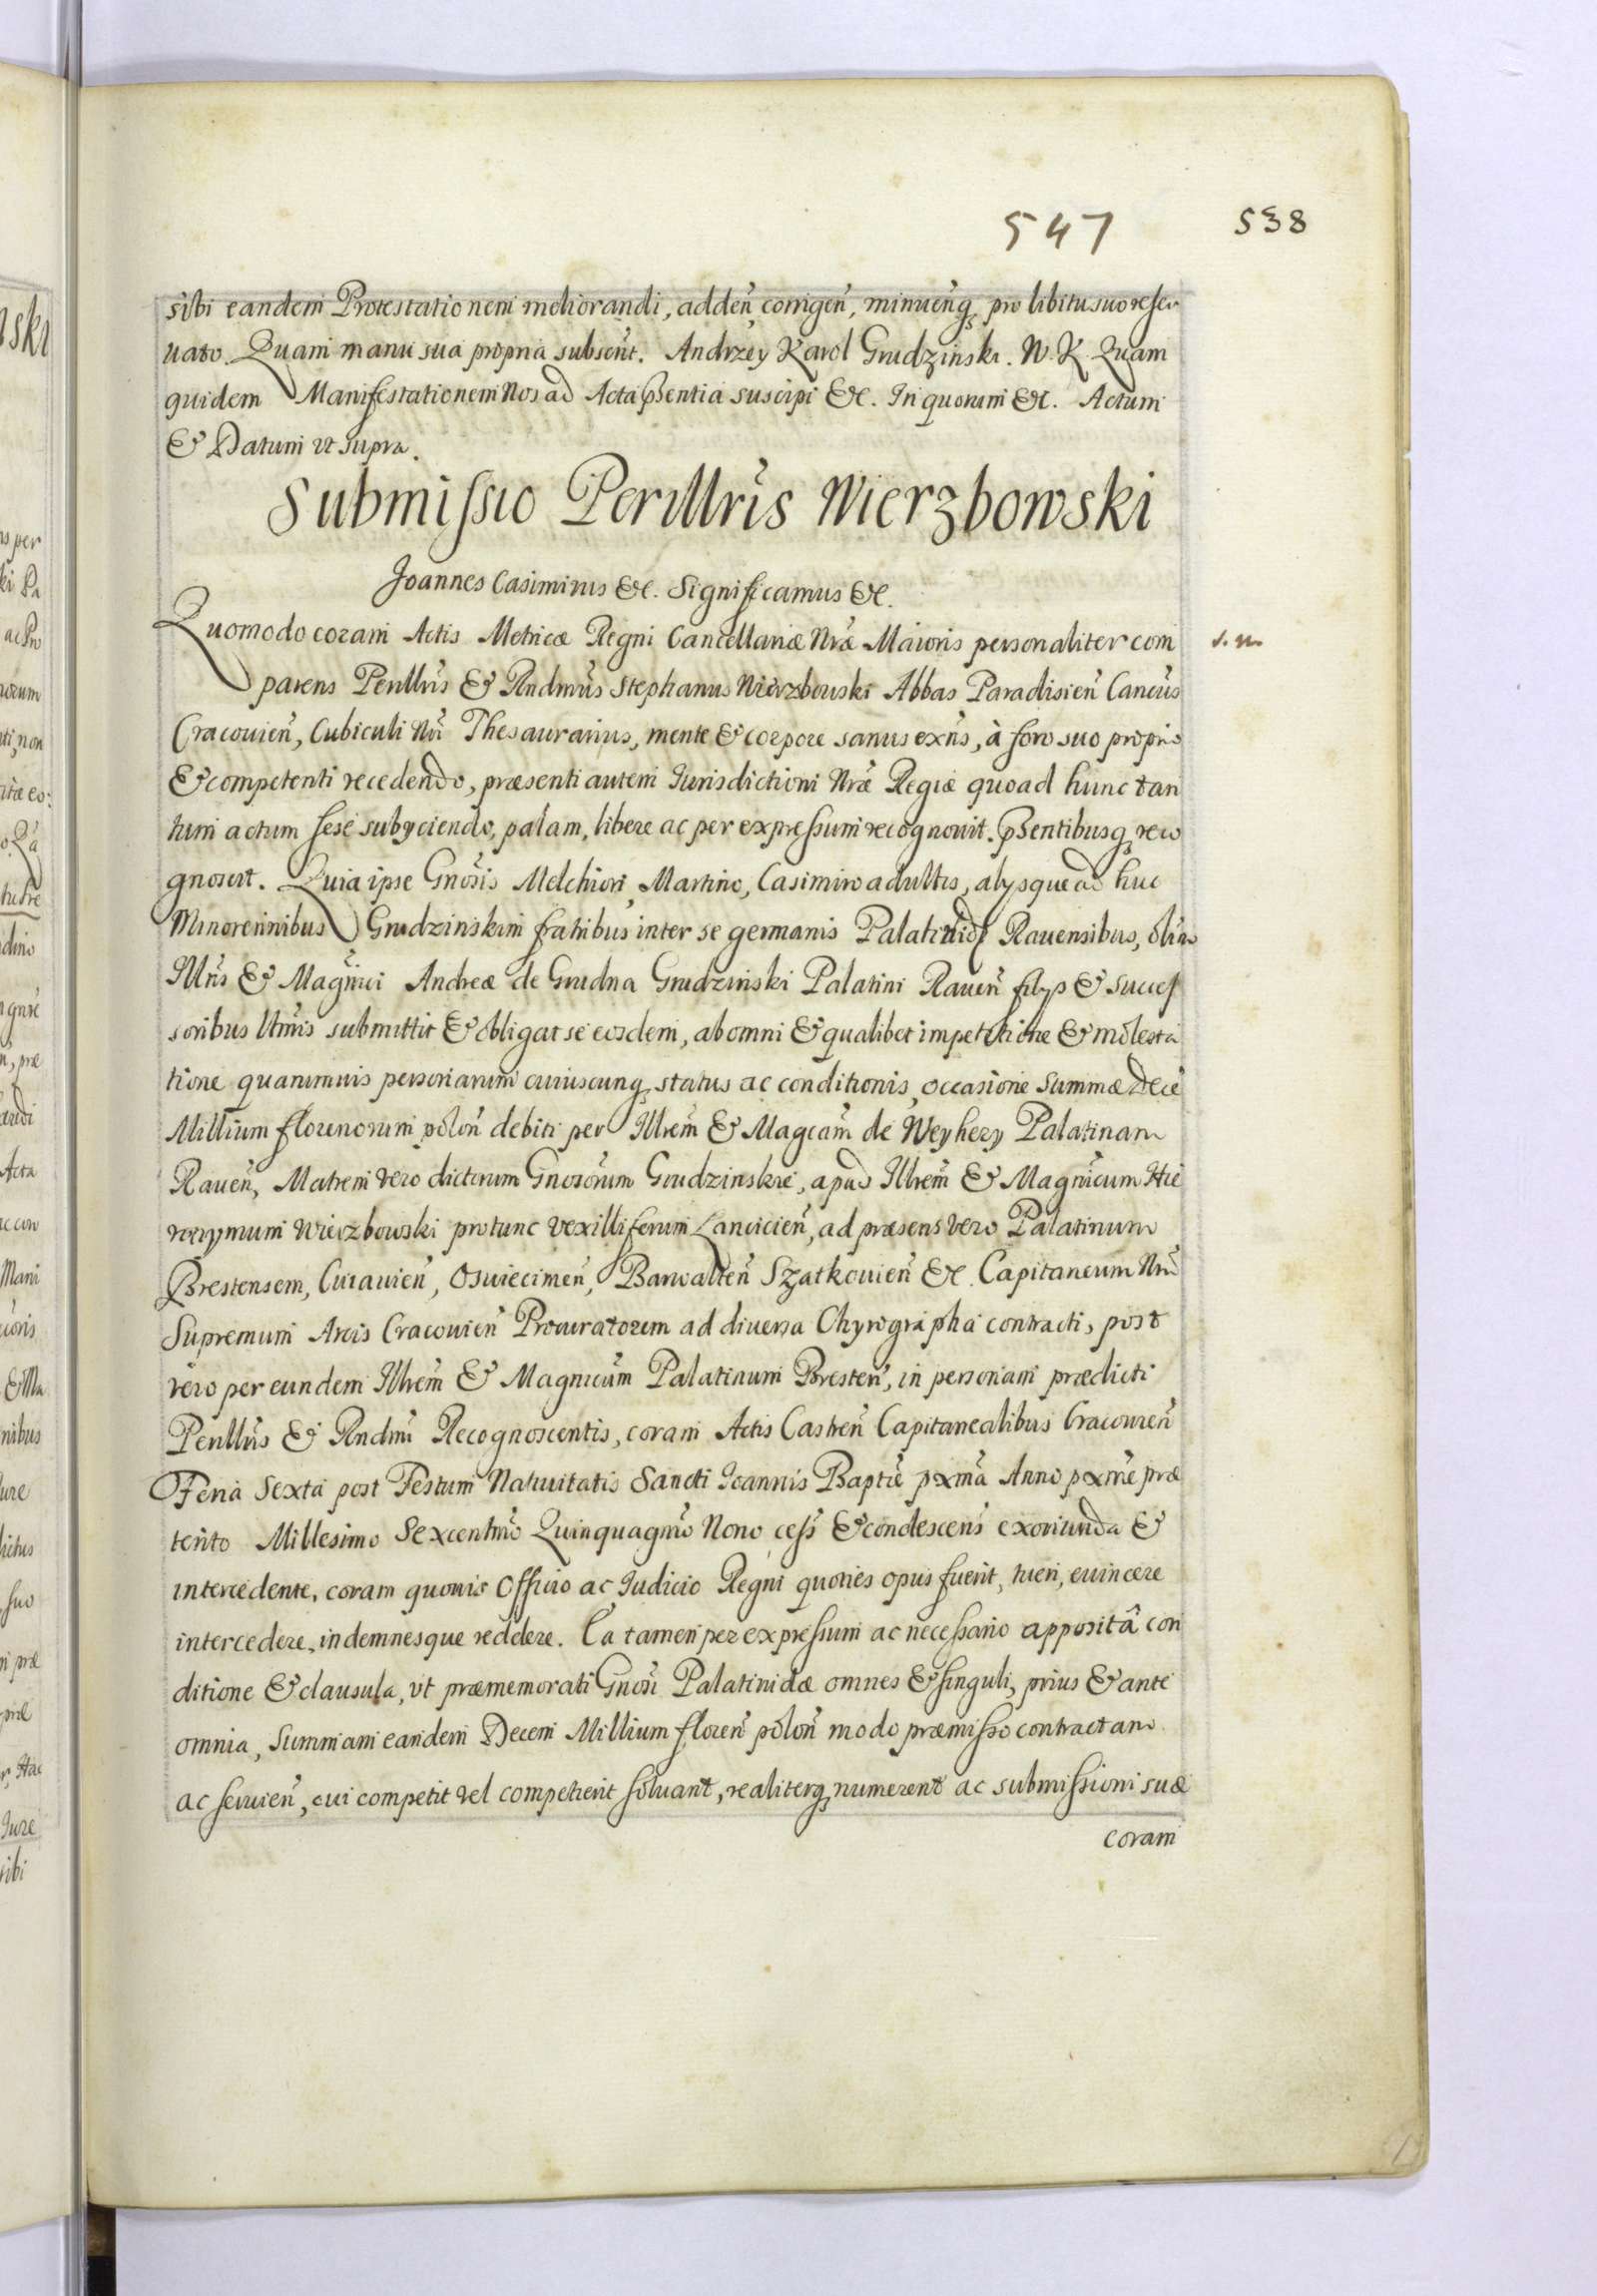 547 538
sibi eandem Protestationem meliorandi, adden̄ corrigen̄, minuen̄q, pro libitu suo reser
uato. Quam manu sua propria subscri̅t. Andrzey Karol Grudzinski. W. K. Quam
quidem Manifestationem Nos ad Acta pn̄sentia suscipi &c. In quorum &c. Actum
& Datum vt supra.
Submissio Perillr̃is Wierzbowski
Joannes Casimirus &c. Significamus &c.
Quomodo coram Actis Metricæ Regni Cancellariæ Nr̃æ Maioris personaliter com
parens Perillr̃is & Rndmũs Stephanus Wierzbowski Abbas Paradisien̄ Cancũs
Cracouien̄, Cubiculi Nr̃i Thesaurarius, mente & corpore sanus exñs, à foro suo proprio
& competenti recedendo, præsenti autem Jurisdictioni Nr̃æ Regiæ quoad hunc tan
tum actum sese subyciendo, palam, libere ac per expressum recognouit. pn̄sentibusq, reco
gnoscit. Quia ipse Gnõsis Melchiori, Martino, Casimiro adultis, alysque ad huc
Minorennibus Grudzinskim fratribus inter se germanis Palatinidis Rauensibus, olim
Illr̃is & Magñici Andreæ de Grudna Grudzinski Palatini Rauen̄ filys & succes
soribus ltm̃is submittit & obligat se eosdem, ab omni & qualibet impetitione & molesta
tione quarumuis personarum cuiuscunq, status ac conditionis, occasione Summæ Decē
Millium florenorum polon̄ debiti per Illrem̃ & Magcam̃ de Weyhery Palatinam
Rauen̄, Matrem vero dictorum Gnosorũm Grudzinskie, apud Illrem̃ & Magnicũm Hie
ronymum Wierzbowski protunc vexilliferum Lancicien̄, ad præsens vero Palatinum
Brestensem, Cuiauien̄, Oswiecimen̄, Barwalten̄ Szatkouien̄ &c. Capitaneum Nrũ
Supremum Arcis Cracouien̄ Procuratorem ad diuersa Chyrographa contracti, post
vero per eundem Illrem̃ & Magnicũm Palatinum Bresten̄, in personam prædicti
Perillr̃is & Rndmĩ Recognoscentis, coram Actis Castren̄ Capitanealibus Cracouien̄
Feria Sexta post Festum Natiuitatis Sancti Joannis Baptæ̃ pxm̃a Anno pxm̃e præ
terito Millesimo Sexcentm̃o Quinquagm̃o Nono cess̃ & condescens̃ exoriunda &
intercedente, coram quouis Officio ac Judicio Regni quoties opus fuerit, tueri, euincere
intercedere, indemnesque reddere. Ea tamen per expressum ac necessario apposità con
ditione & clausula, vt præmemorati Gnosĩ Palatinidæ omnes & singuli, prius & ante
omnia, Summam eandem Decem Millium floren̄ polon̄ modo præmisso contractam
ac seruien̄, cui competit vel competierit soluant, realiterq, numerent ac submissioni suæ
coram